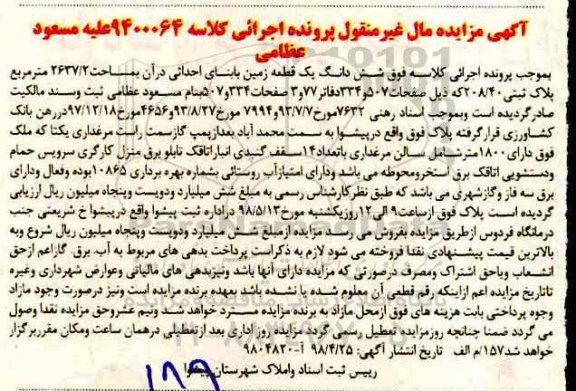 آگهی مزایده مال غیر منقول پرونده اجرائی کلاسه ۹۴۰۰۰۶۴علیه مسعود
عظامی
بموجب پرونده اجرائی کلاسه فوق شش دانگ یک قطعه زمین بابنای احداثی درآن بمساحت۲۶۳۷/۲ مترمربع
پلاک ثبتی۲۰۸/۴۰که ذیل صفحات۵۰۷و۳۳۴دفاتر۷۷و۳ صفحات۳۳۴و۵۰۷بنام مسعود عظامی ثبت وسند مالکیت
صادرگردیده است وبموجب اسناد رهنی ۷۶۳۲مورخ۹۳/۷/۷و۷۹۹۴ مورخ۹۳/۸/۲۷و۴۶۵۶مورخ۹۷/۱۲/۱۸دررهن بانک
کشاورزی قرارگرفته پلاک فوق واقع درپیشوا به سمت محمد آباد بعدازپمپ گازسمت راست مرغداری یکتا که ملک
فوق دارای۱۸۰۰مترشامل سالن مرغداری باتعداد۱۴سقف گنبدی انباراتاقک تابلو برق منزل کارگری سرویس حمام
ودستشویی اتاقک برق استخرومحوطه می باشد ودارای امتیازآب روستائی بشماره بهره برداری ۱۰۸۶۵بوده وفعال ودارای
برق سه فاز وگازشهری می باشد که طبق نظرکارشناس رسمی به مبلغ شش میلیارد ودویست وپنجاه میلیون ریال ارزیابی
گردیده است پلاک فوق ازساعت۹الی۱۲روزیکشنبه مورخ۹۸/۵/۱۳ دراداره ثبت پیشوا واقع درپیشوا خ شریعتی جنب
درمانگاه فردوس ازطریق مزایده بفروش می رسد مزایده ازمبلغ شش میلیارد ودویست وپنجاه میلیون ریال شروع وبه
بالاترین قیمت پیشنهادی نقدا فروخته می شود لازم به ذکراست پرداخت بدهی های مربوط به آب، برق، گازاعم ازحق
انشعاب ویاحق اشتراک ومصرف درصورتی که مزایده دارای آنها باشد ونیزبدهی های مالیاتی وعوارض شهرداری وغیره
تاتاریخ مزایده اعم ازاینکه رقم قطعی آن معلوم شده یا نشده باشد بعهده برنده مزایده است ونیز درصورت وجود مازاد
وجوه پرداختی بابت هزینه های فوق ازمحل مازاد به برنده مزایده مسترد خواهد شد ونیم عشروحق مزایده نقدا وصول
می گردد ضمنا چنانچه روزمزایده تعطیل رسمی گردد مزایده روز اداری بعد ازتعطیلی درهمان ساعت ومکان مقرربرگزار
خواهد شد۱۵۷/م الف تاریخ انتشار آگهی: ۹۸/۴/۲۵ آ-۹۸۰۴۸۲۰
رییس ثبت اسناد واملاک شهرستان پیشوا
۱۸۹